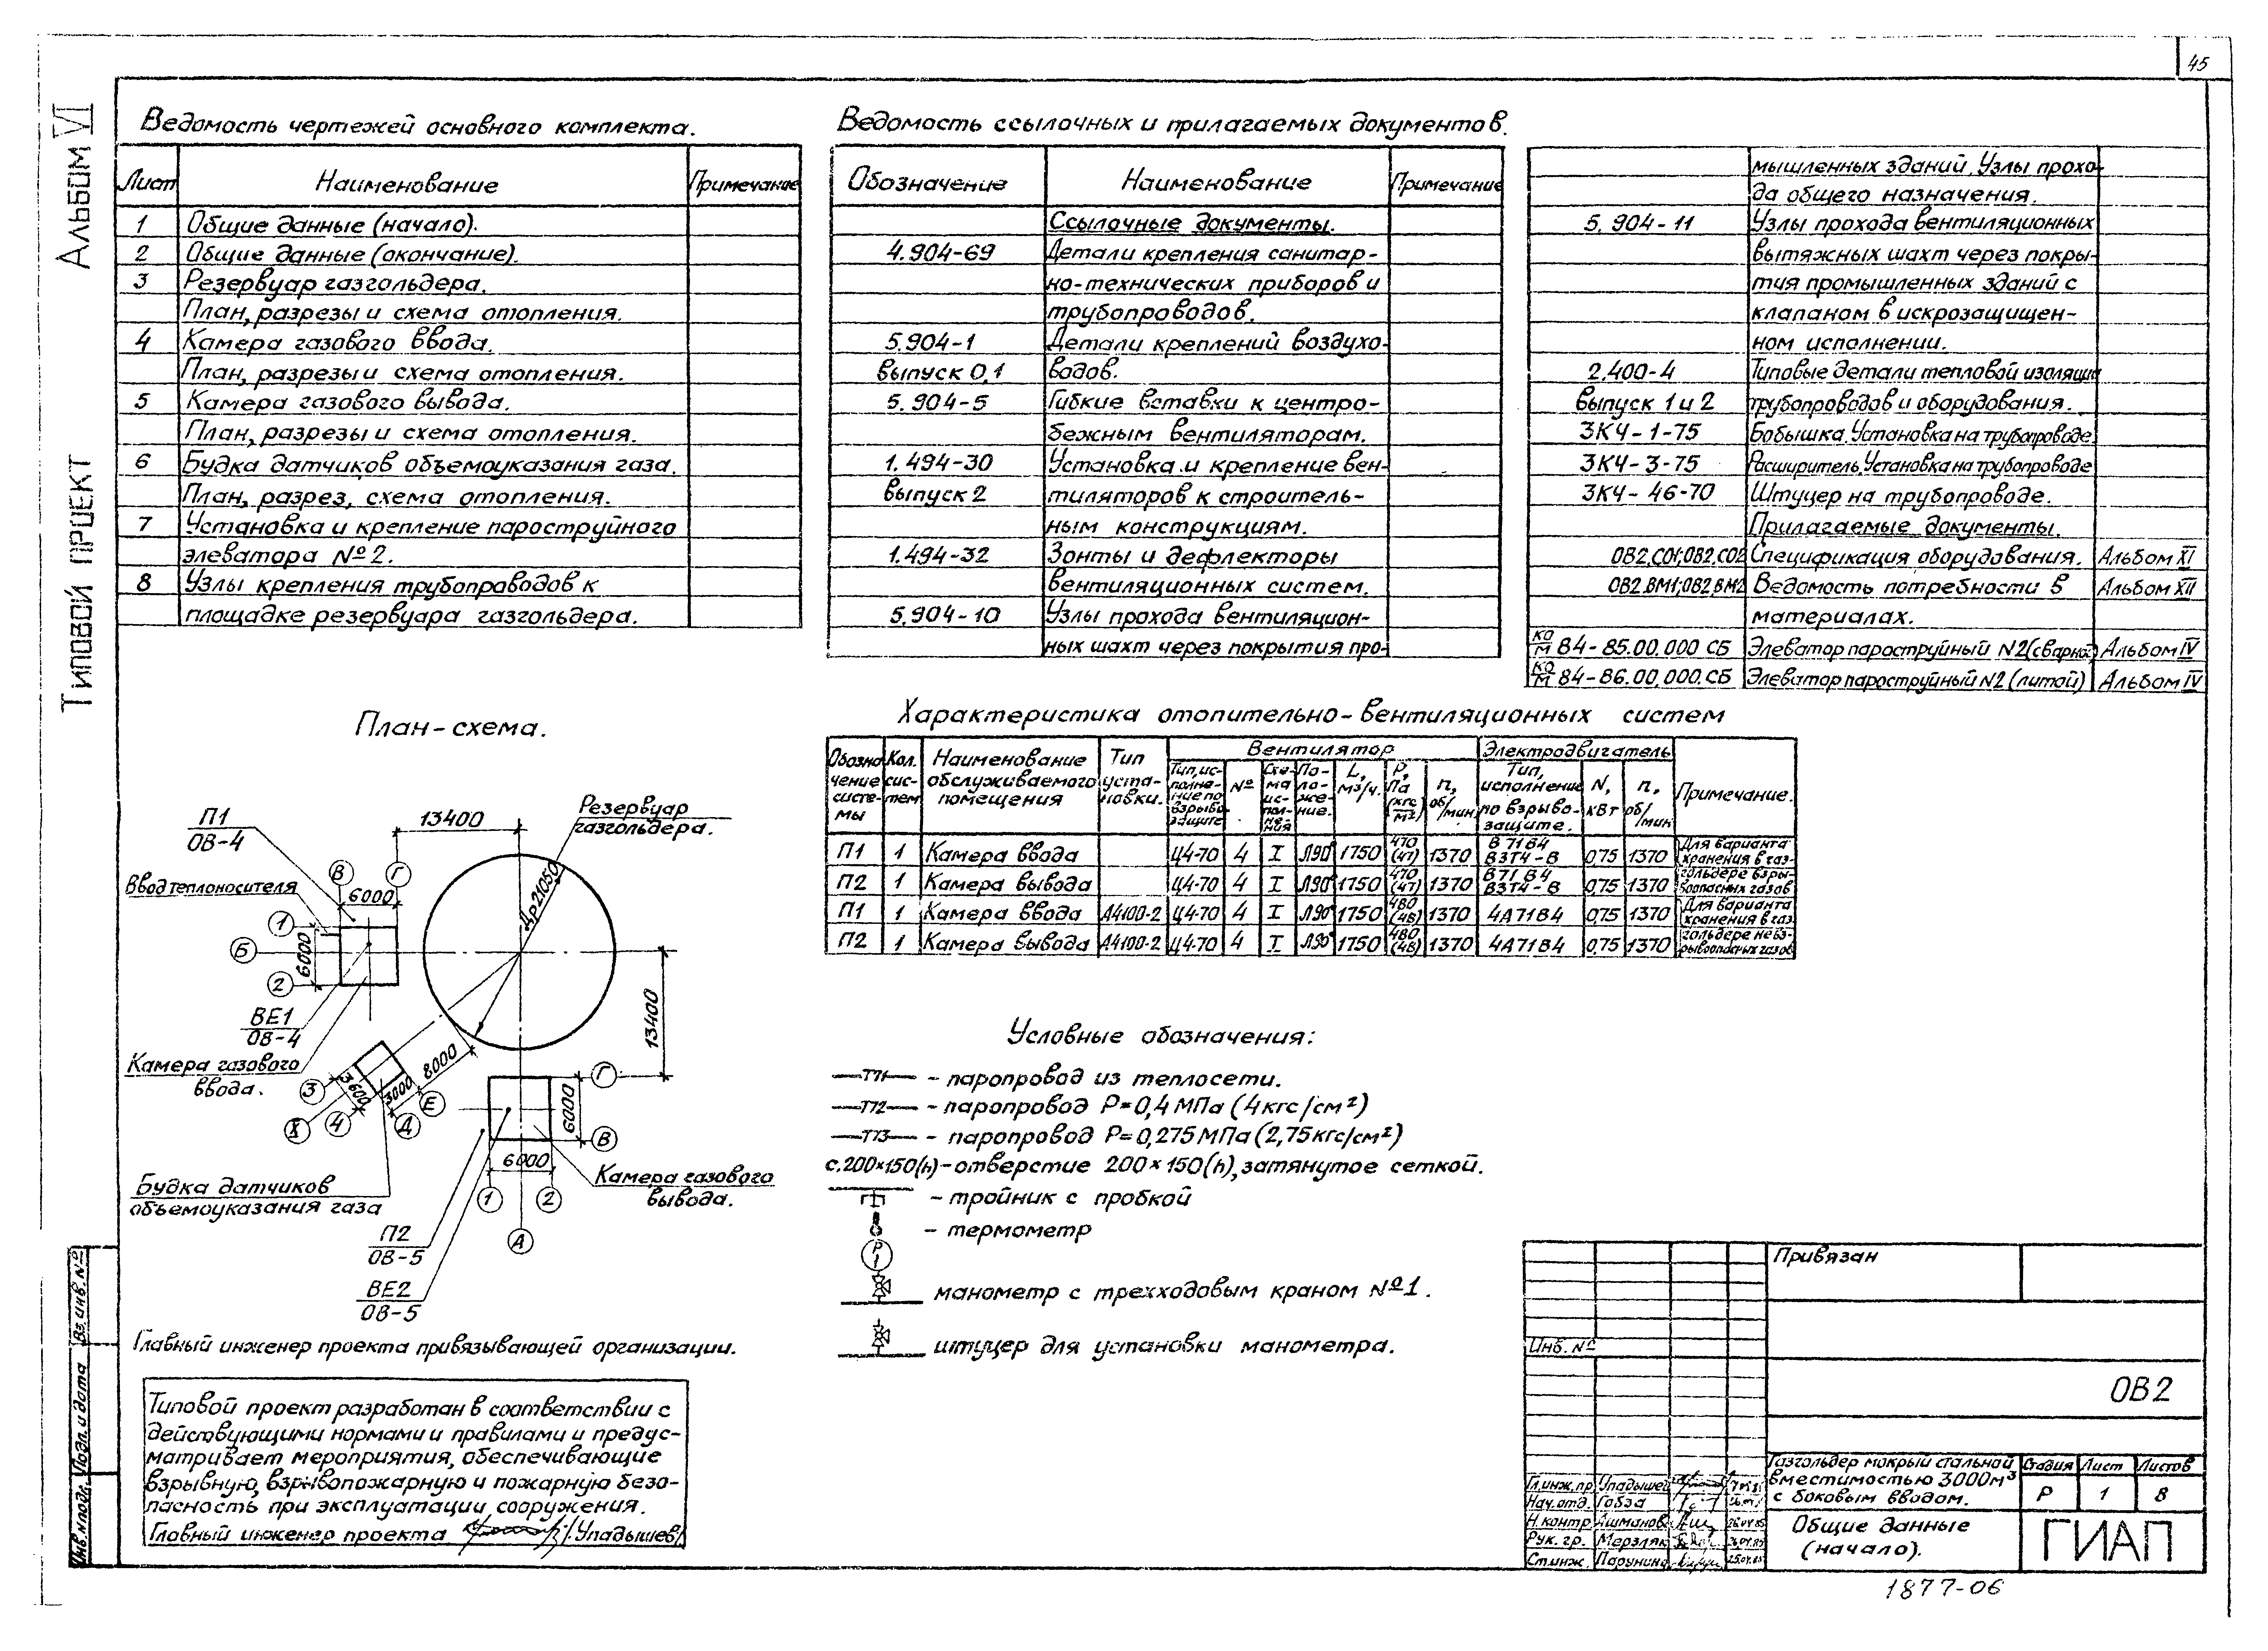 45
Альбом VI
Типовой проект
Ведомость чертежей основного комплекта.
Лист Наименование Примечание
1 Общие данные (начало).
2 Общие данные (окончание).
3 Резервуар газгольдера.
План, разрезы и схема отопления.
4 Камера газового ввода.
План, разрезы и схема отопления.
5 Камера газового вывода.
План, разрезы и схема отопления.
6 Будка датчиков объемоуказания газа.
План, разрез, схема отопления.
7 Установка и крепление пароструйного
элеватора №2.
8 Узлы крепления трубопроводов к
площадке резервуара газгольдера.
Ведомость ссылочных и прилагаемых документов.
Обозначение Наименование Примечание
Ссылочные документы.
4.904-69 Детали крепления санитар-
но-технических приборов и
трубопроводов.
5.904-1 Детали креплений воздухо-
выпуск 0,1 водов.
5.904-5 Гибкие вставки к центро-
бежным вентиляторам.
1.494-30 Установка и крепление вен-
выпуск 2 тиляторов к строитель-
ным конструкциям.
1.494-32 Зонты и дефлекторы
вентиляционных систем.
5.904-10 Узлы прохода вентиляцион-
ных шахт через покрытия про-
мышленных зданий. Узлы прохо-
да общего назначения.
5.904-11 Узлы прохода вентиляционных
вытяжных шахт через покры-
тия промышленных зданий с
клапаном в искрозащищен-
ном исполнении.
2.400-4 Типовые детали тепловой изоляции
выпуск 1 и 2 трубопроводов и оборудования.
ЗКЧ-1-75 Бобышка. Установка на трубопроводе
ЗКЧ-3-75 Расширитель. Установка на трубопроводе
ЗКЧ-46-70 Штуцер на трубопроводе.
Прилагаемые документы.
ОВ2.СО1; ОВ2.СО2 Спецификация оборудования. Альбом XI
ОВ2.ВМ1; ОВ2.ВМ2 Ведомость потребности в Альбом XII
материалах.
КО/М 84-85.00.000 СБ Элеватор пароструйный №2 (сварной) Альбом IV
КО/М 84-86.00.000.СБ Элеватор пароструйный №2 (литой) Альбом IV
План-схема.
П1
ОВ-4
Ввод теплоносителя
13400
Резервуар
газгольдера.
В Г
6000
Др21050
1
Б
6000
2
ВЕ1
ОВ-4
Камера газового
ввода.
13400
8000
3
3600
3000
4
Д
Е
Г
6000
В
6000
1 2
А
Камера газового
вывода.
Будка датчиков
объемоуказания газа
П2
ОВ-5
ВЕ2
ОВ-5
Характеристика отопительно-вентиляционных систем
Обозначение системы Кол. систем Наименование обслуживаемого помещения Тип установки. Вентилятор Электродвигатель Примечание.
Тип, исполнение по взрывозащите № Схема исполнения Положение. L, м³/ч. Р, Па (кгс/м²) n, об/мин Тип, исполнение по взрывозащите. N, кВт n, об/мин
П1 1 Камера ввода Ц4-70 4 I Л90° 1750 470 (47) 1370 В71В4 В3Т4-В 0,75 1370 Для варианта хранения в газ-
П2 1 Камера вывода Ц4-70 4 I Л90° 1750 470 (47) 1370 В71В4 В3Т4-В 0,75 1370 гольдере взры- воопасных газов
П1 1 Камера ввода А4100-2 Ц4-70 4 I Л90° 1750 480 (48) 1370 4А71В4 0,75 1370 Для варианта хранения в газ-
П2 1 Камера вывода А4100-2 Ц4-70 4 I Л90° 1750 480 (48) 1370 4А71В4 0,75 1370 гольдере невз- рывоопасных газов
Условные обозначения:
Т71 - паропровод из теплосети.
Т72 - паропровод Р=0,4 МПа (4кгс/см²)
Т73 - паропровод Р=0,275 МПа (2,75кгс/см²)
с.200×150(h) - отверстие 200×150(h), затянутое сеткой.
- тройник с пробкой
- термометр
Р
1
манометр с трехходовым краном №1.
штуцер для установки манометра.
Главный инженер проекта привязывающей организации.
Типовой проект разработан в соответствии с
действующими нормами и правилами и предус-
матривает мероприятия, обеспечивающие
взрывную, взрывопожарную и пожарную безо-
пасность при эксплуатации сооружения.
Главный инженер проекта /Упадышев/
Вз. инв. №
Подп. и дата
Инв. № подл.
Привязан
Инв. №
ОВ2
Гл.инж.пр Упадышев
Нач.отд. Гобза
Н.контр Ашманов 26.04.85
Рук. гр. Мерзляк 26.04.85
Ст.инж. Парунина 25.04.85
Газгольдер мокрый стальной
вместимостью 3000м³
с боковым вводом.
Стадия Лист Листов
Р 1 8
Общие данные
(начало).
ГИАП
1877-06